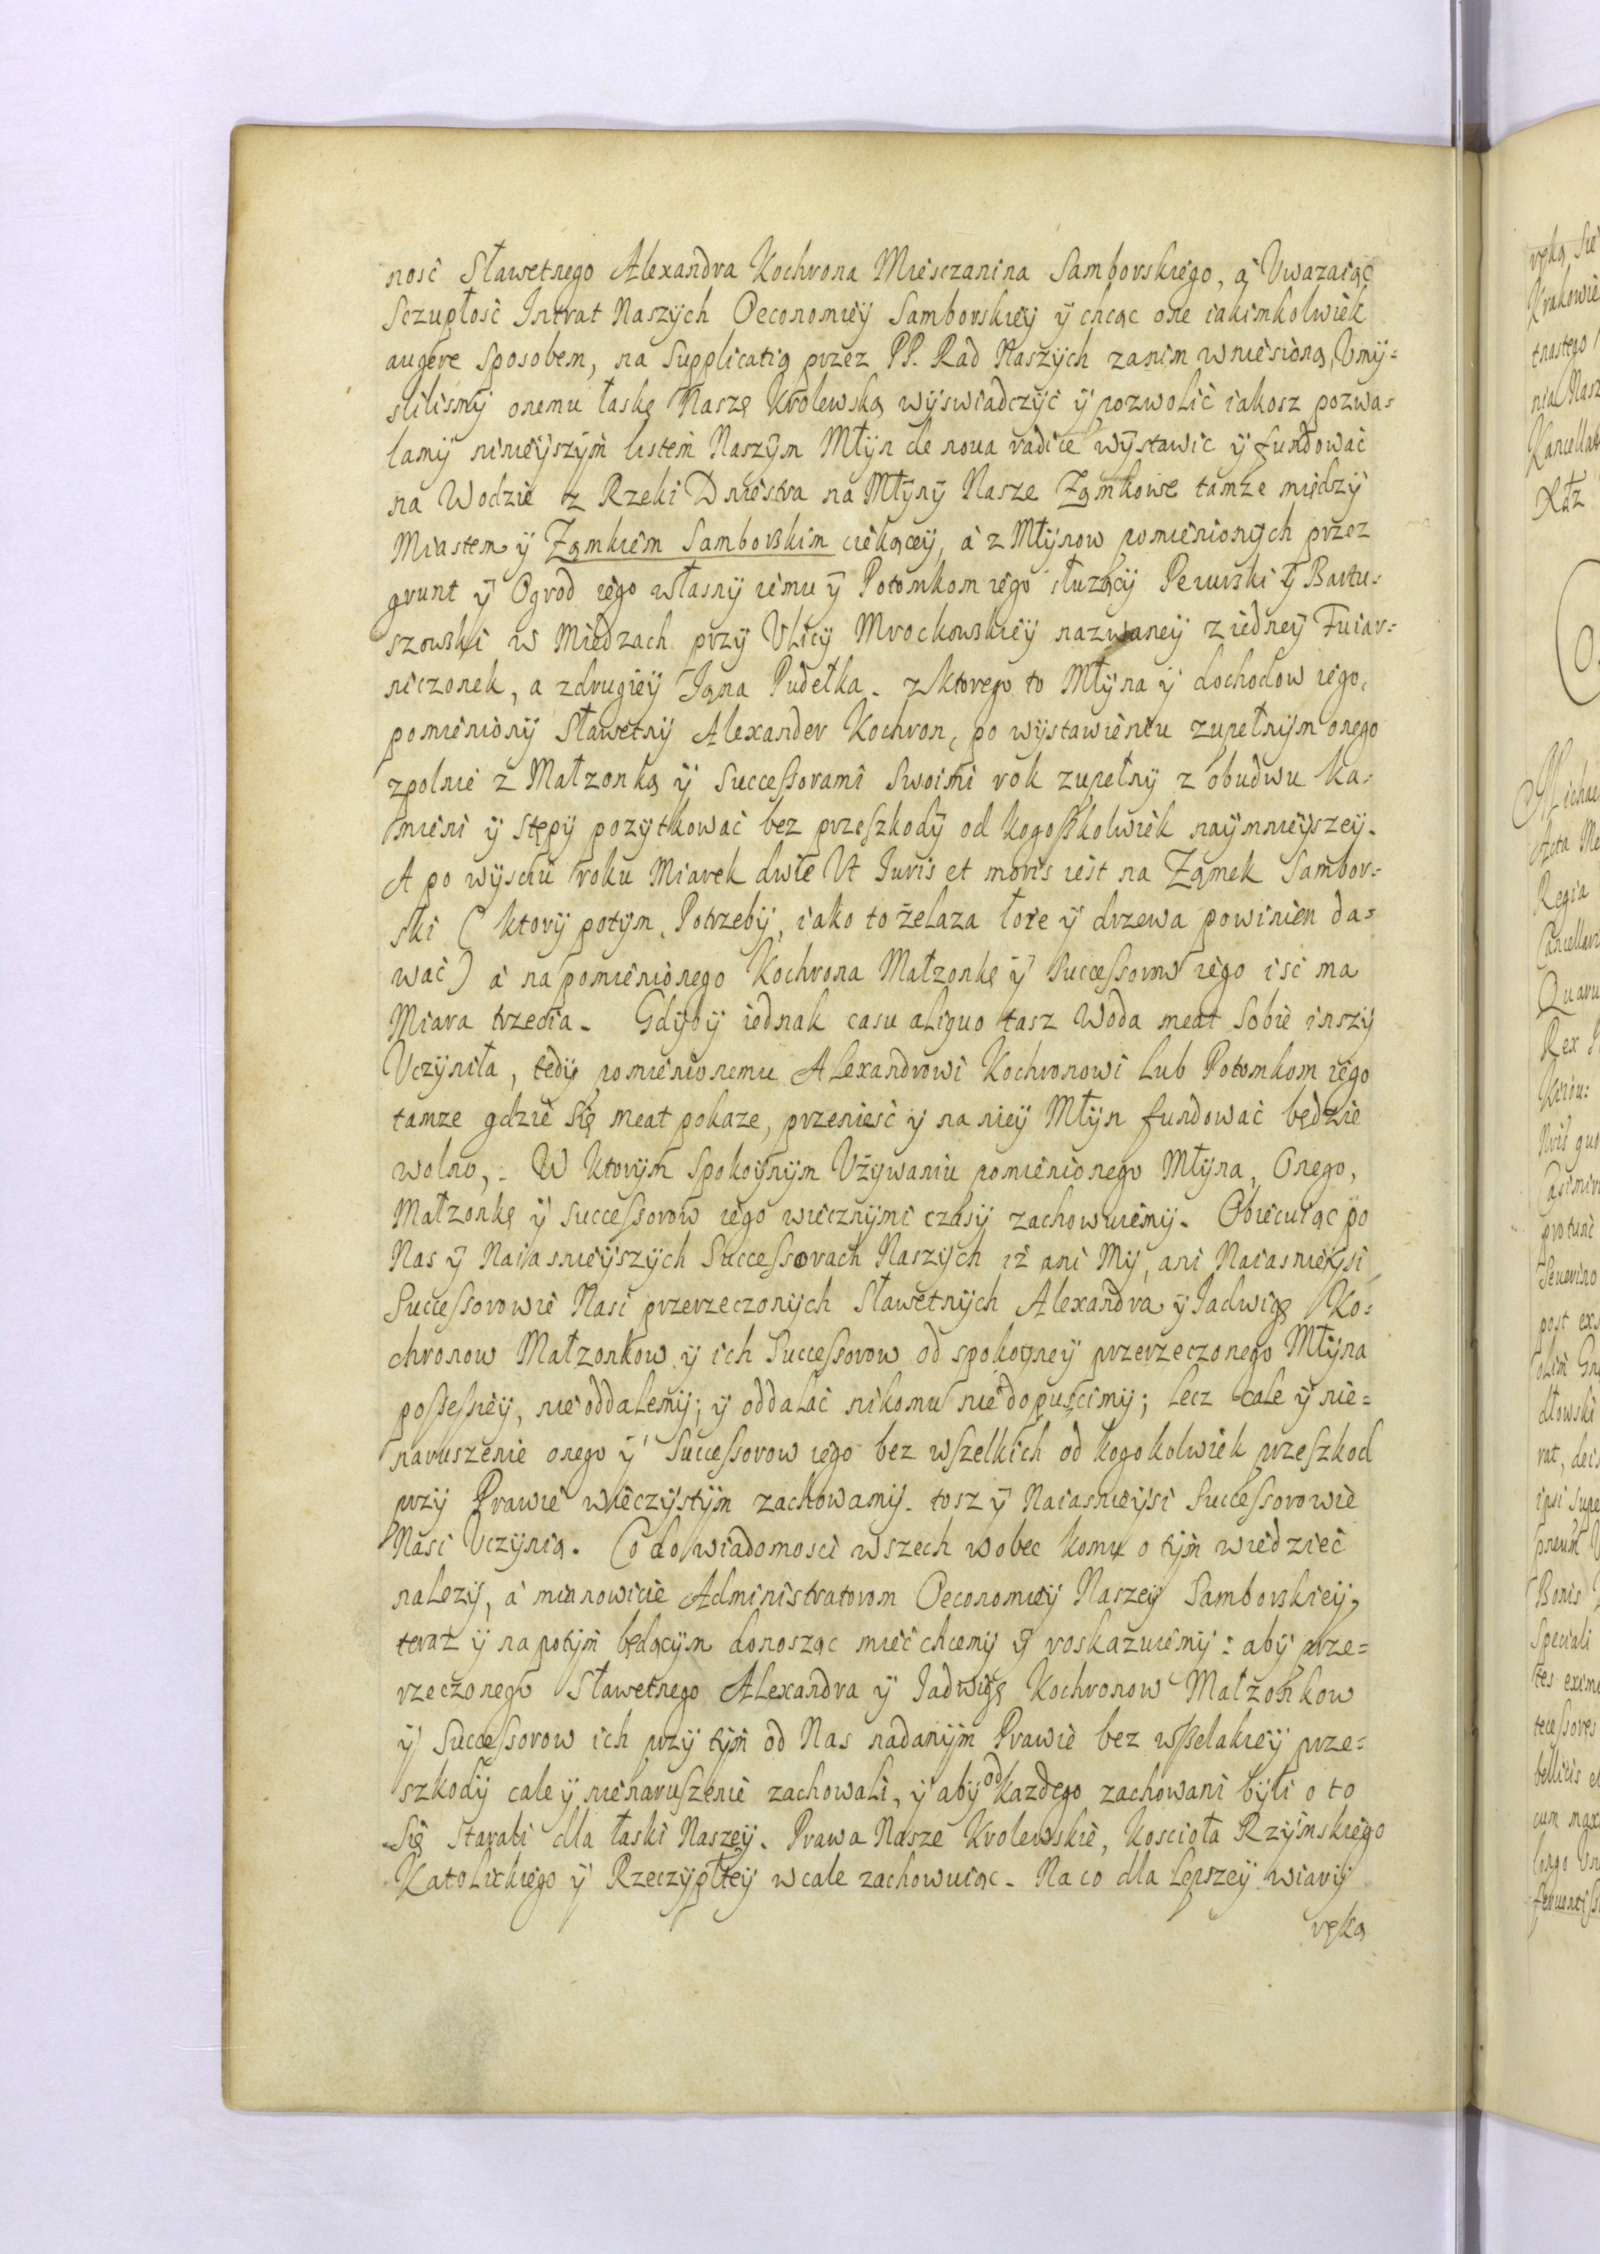 nosc Sławetnego Alexandra Kochrona Miesczanina Samborskiego, a Uwazaiąc
Sczupłosc Intrat Naszych Oeconomiey Samborskiey y chcąc one iakimkolwiek
augere sposobem, na Supplicatią przez PP. Rad Naszych zanim wniesioną, Umy=
slilismy onemu łaskę Naszę Krolewską wyswiadczyc y pozwolic iakosz pozwa=
lamy ninieyszym listem Naszym Młyn de noua radice wystawic y fundowac
na Wodzie z Rzeki Dniestra na Młyny Nasze Zamkowe tamze między
Miastem y Zamkiem Samborskim ciekącey, a z Młynow pomienionych przez
grunt y Ogrod iego własny iemu y Potomkom iego słuzący y Bartu=
szowski w Miedzach przy Ulicy Mrockowskiey nazwaney z iedney Fuiar=
niczonek, a zdrugiey Jana Pudełka. z ktorego to Młyna y dochodow iego,
pomieniony Sławetny Alexander Kochron, po wystawieniu zupełnym onego
zpolnie z Małzonką y Successorami Swoimi rok zupełny z obudwu ka=
mieni y stępy pozytkowac bez przeszkody od kogoszkolwiek naymnieyszey.
A po wysciu roku Miarek dwie Ut Iuris et moris iest na Zamek Sambor=
ski (ktory potym, Potrzeby, iako to żelaza łoie y drzewa powinien da=
wac) a na pomienionego Kochrona Małzonkę y Successorow iego isc ma
Miara trzecia. Gdyby iednak casu aliquo tasz Woda meat Sobie inszy
Uczyniła, tedy pomienionemu Alexandrowi Kochronowi lub Potomkom iego
tamze gdzie się meat pokaze, przeniesc y na niey Młyn fundowac będzie
wolno,. W ktorym spokoynym Używaniu pomienionego Młyna, Onego,
Małzonkę y Successorow iego wiecznymi czasy zachowuiemy. Obiecuiąc po
Nas y Naiasnieyszych Successorach Naszych iż ani My, ani Naiasnieysi
Successorowie Nasi przerzeczonych Sławetnych Alexandra y Jadwigę Ko=
chronow Małzonkow y ich Successorow od spokoyney przerzeczonego Młyna
possessiey, nie oddalemy; y oddalac nikomu nie dopuscimy; lecz cale y nie=
naruszenie onego y Successorow iego bez wszelkich od kogokolwiek przeszkod
przy Prawie wieczystym zachowamy. tosz y Naiasnieysi Successorowie
Nasi Uczynią. Co do wiadomosci wszech wobec komu o tym wiedziec
nalezy, a mianowicie Administratorom Oeconomiey Naszey Samborskiey,
teraz y napotym będącym donosząc miec chcemy y roskazuiemy: aby prze=
rzeczonego Sławetnego Alexandra y Jadwigę Kochronow Małzonkow
y Successorow ich przy tym od Nas nadanym Prawie bez wszelakiey prze=
szkody cale y nienaruszenie zachowali, y aby od kazdego zachowani byli o to
się starali dla łaski Naszey. Prawa Nasze Krolewskie, Koscioła Rzymskiego
Katolickiego y Rzeczypltey wcale zachowuiąc. Na co dla lepszey wiary
ręką